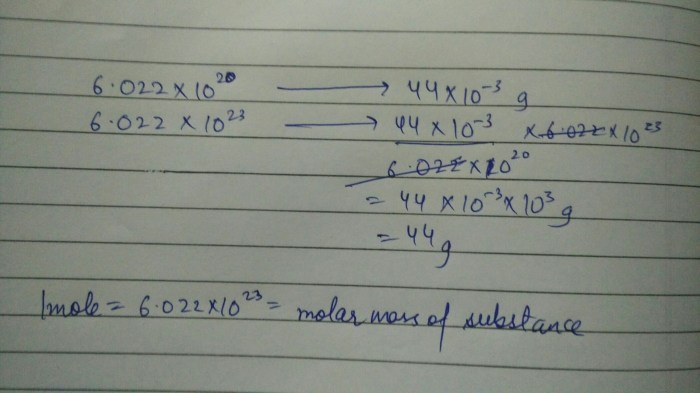 6.022 × 10²⁰ ⟶ 44 × 10⁻³ g
6.022 × 10²³ ⟶ 44 × 10⁻³ × 6.022 × 10²³
6.022 × 10²⁰
= 44 × 10⁻³ × 10³ g
= 44 g
1mole = 6.022 × 10²³ = molar mass of substance